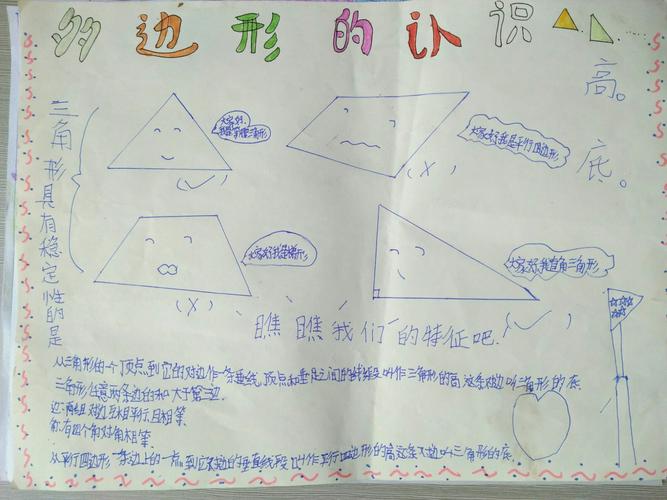 多边形的认识
高。
底。
三角形具有稳定性的是
大家好,
我是等腰三角形
(✓)
大家好我是平行四边形
(X)
大家好我是梯形
(X)
大家好我直角三角形
(✓)
瞧瞧我们的特征吧.
从三角形的一个顶点到它的对边作一条垂线,顶点和垂足之间的线段叫作三角形的高这条对边叫三角形的底.
三角形任意两条边的和大于第三边.
边:两组对边互相平行且相等.
角:有四个角对角相等.
从平行四边形一条边上的一点到它对边的垂直线段叫作平行四边形的高这条对边叫三角形的底.